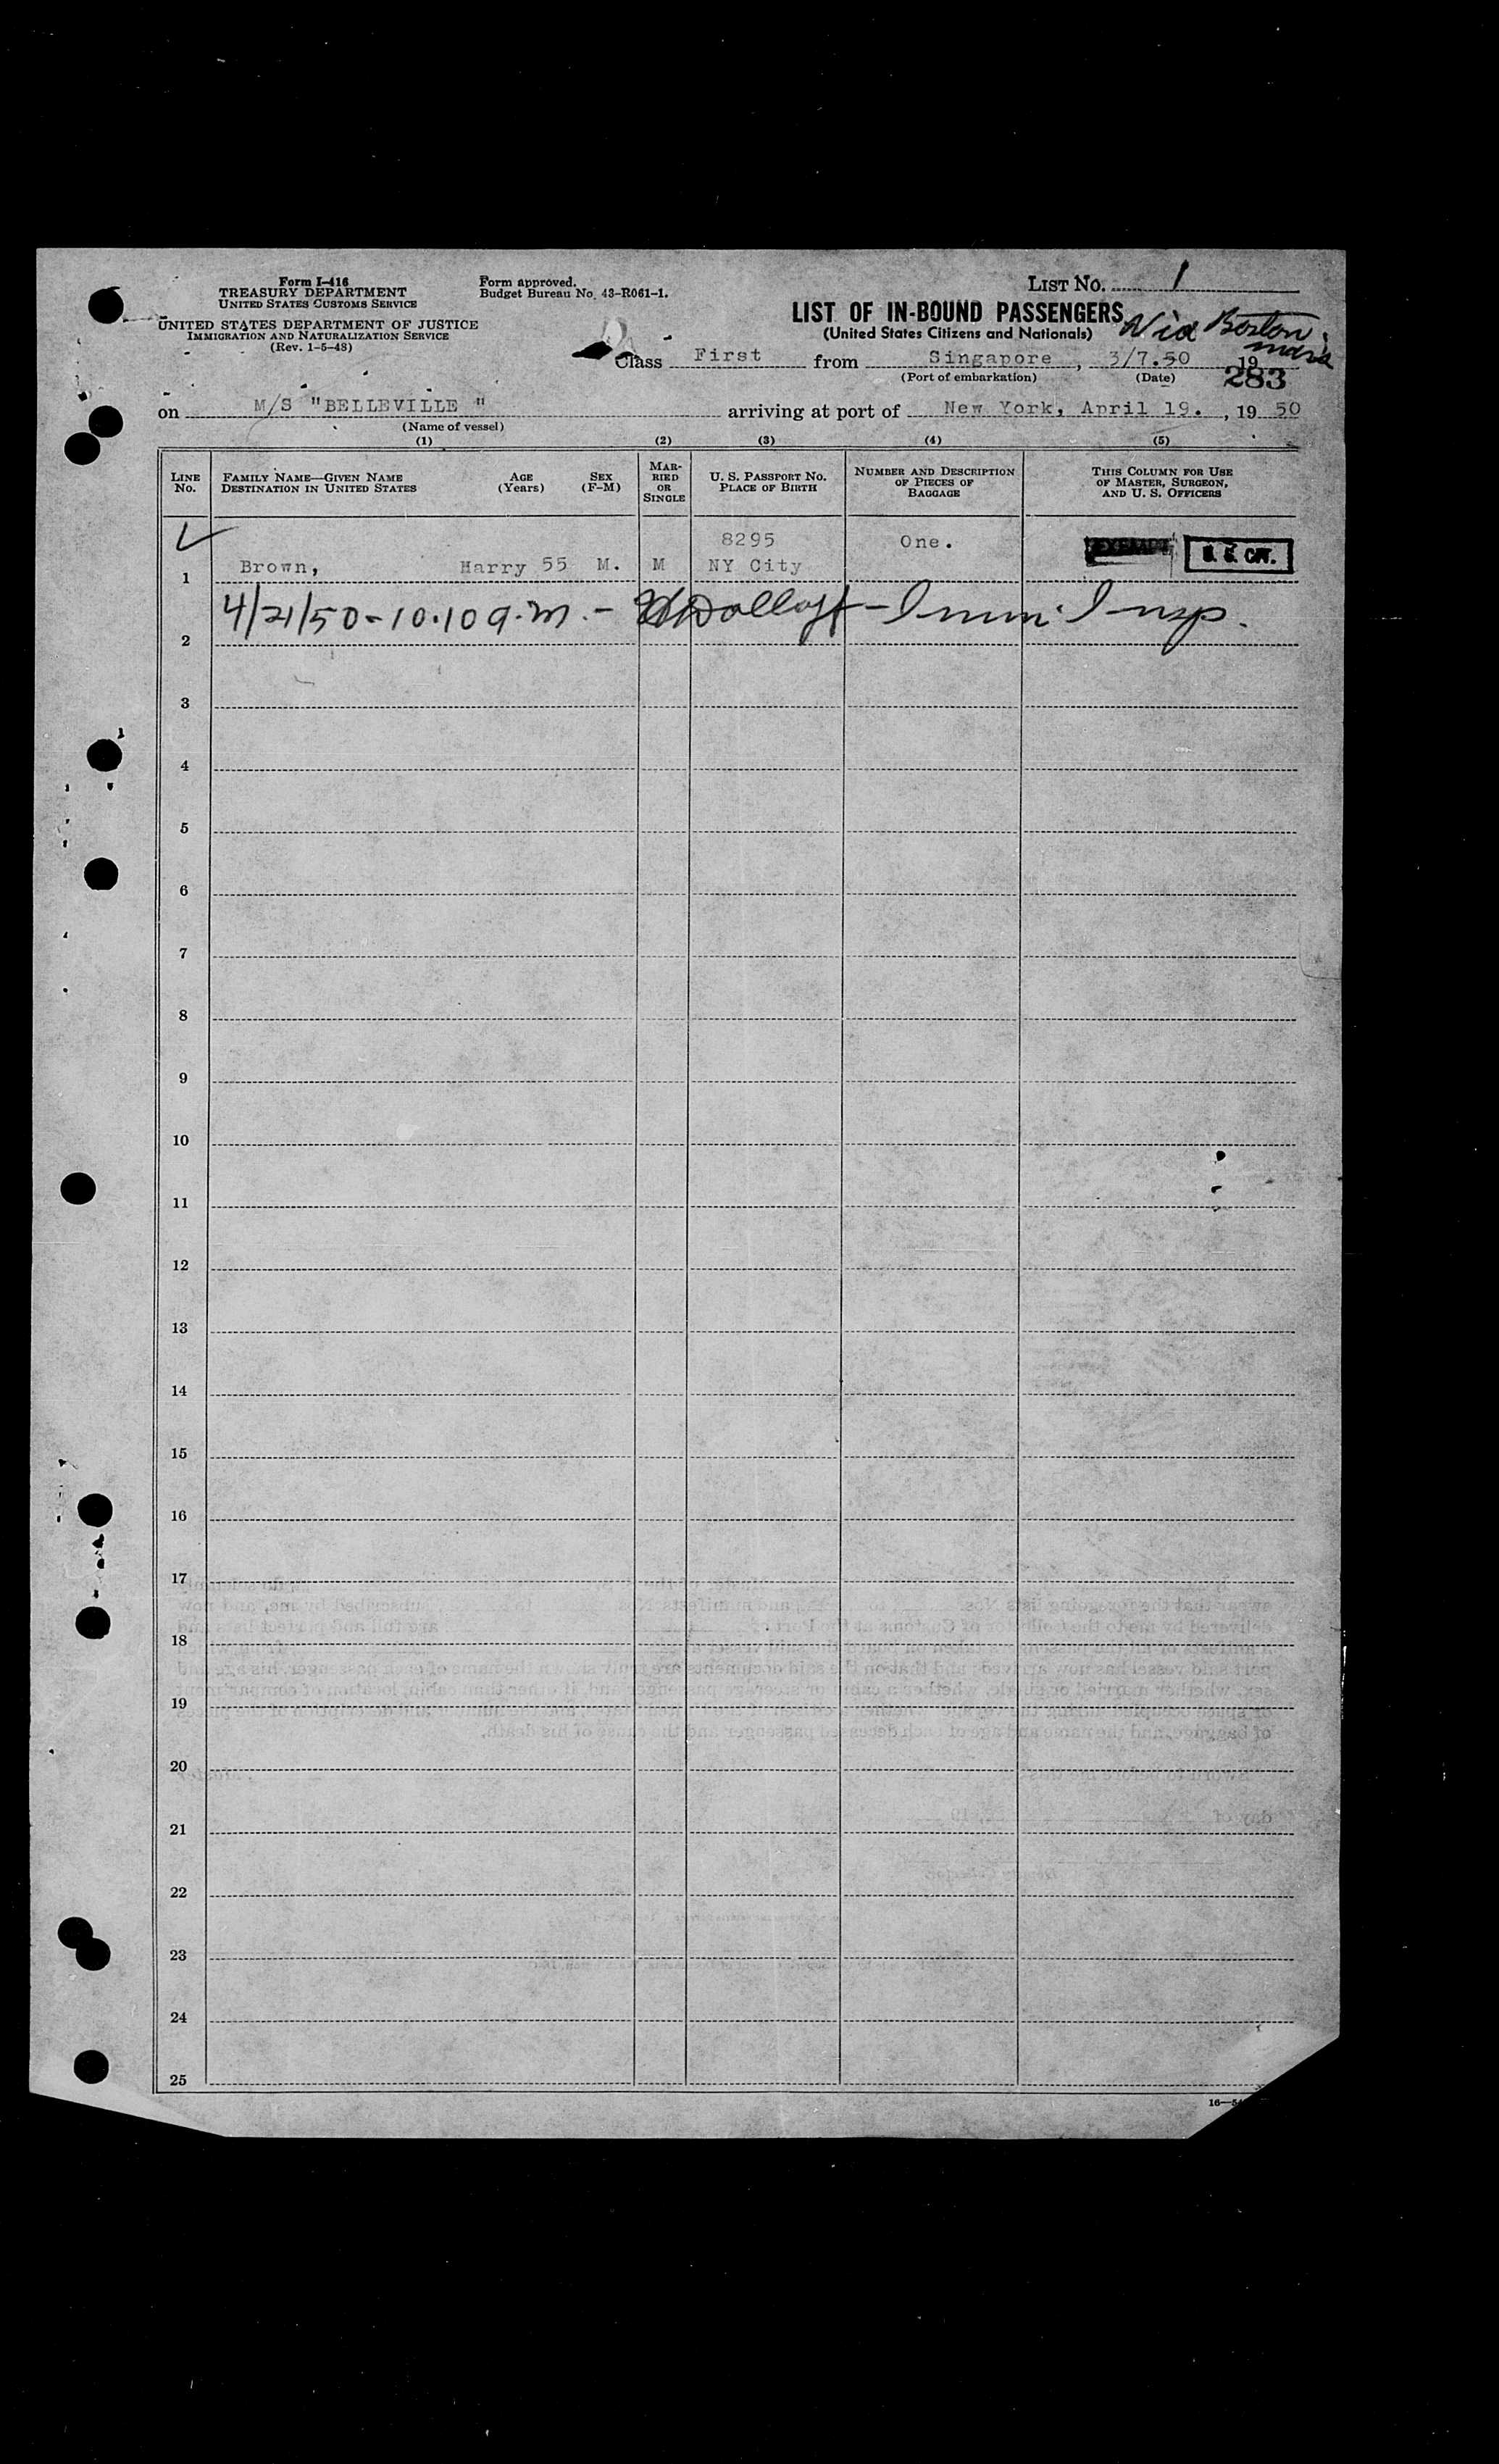 Form I-416
TREASURY DEPARTMENT
UNITED STATES CUSTOMS SERVICE
UNITED STATES DEPARTMENT OF JUSTICE
IMMIGRATION AND NATURALIZATION SERVICE
(Rev. 1-5-48)
Form approved.
Budget Bureau No. 43-R061-1.
LIST NO. 1
LIST OF IN-BOUND PASSENGERS
(United States Citizens and Nationals)
Via Boston
mass
Class First from Singapore, 3/7.50 19
(Port of embarkation) (Date)
283
on M/S "BELLEVILLE " arriving at port of New York, April 19. , 19 50
(Name of vessel)
(1) (2) (3) (4) (5)
LINE No.
FAMILY NAME—GIVEN NAME
DESTINATION IN UNITED STATES
AGE (Years)
SEX (F-M)
MARRIED OR SINGLE
U. S. PASSPORT NO.
PLACE OF BIRTH
NUMBER AND DESCRIPTION OF PIECES OF BAGGAGE
THIS COLUMN FOR USE OF MASTER, SURGEON, AND U. S. OFFICERS
8295 One.
1 Brown, Harry 55 M. M NY City EXEMPT U. S. CIT.
4/21/50-10.10 a.m. - - Imm. Insp.
2
3
4
5
6
7
8
9
10
11
12
13
14
15
16
17
18
19
20
21
22
23
24
25